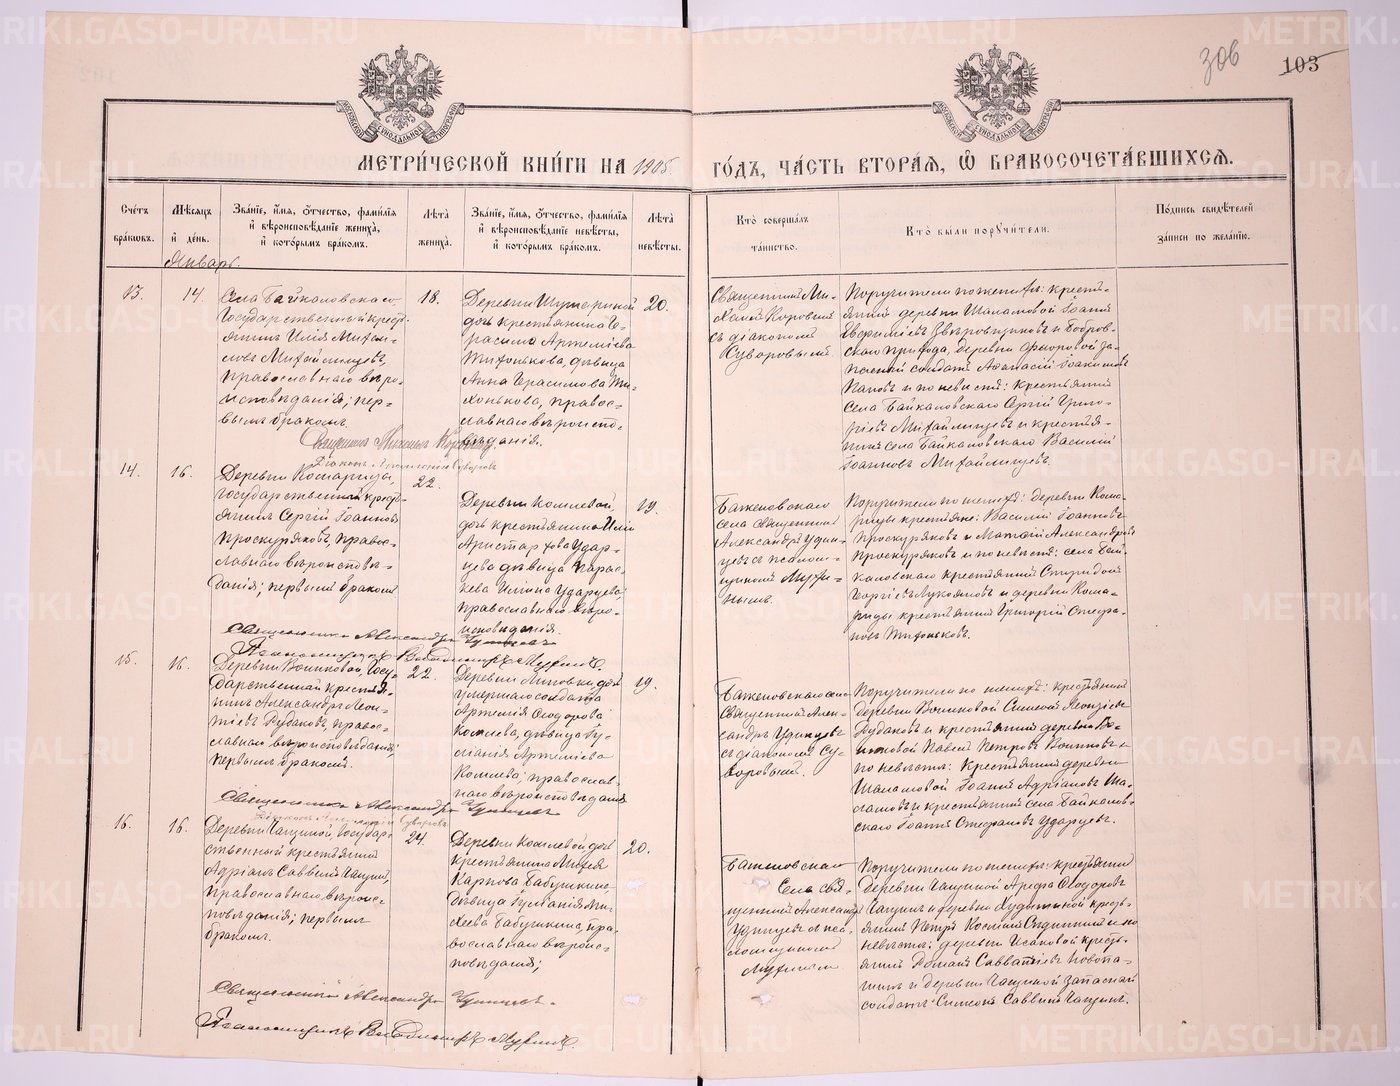 306
103
МЕТРИ́ЧЕСКОЙ КНИ́ГИ НА 1905 ГО́ДЪ, ЧА́СТЬ ВТОРА́Я, Ѽ БРАКОСОЧЕТА́ВШИХСЯ.
Сче́тъ бра́ковъ.
Мѣ́сяцъ и҆ де́нь.
Зва́нїе, и҆́мя, ѻ҆́тчество, фами́лїя и҆ вѣроисповѣ́данїе жениха̀, и҆ кото́рымъ бра́комъ.
Лѣ́та жениха̀.
Зва́нїе, и҆́мя, ѻ҆́тчество, фами́лїя и҆ вѣроисповѣ́данїе невѣ́сты, и҆ кото́рымъ бра́комъ.
Лѣ́та невѣ́сты.
Кто̀ соверша́лъ та́инство.
Кто̀ бы́ли порꙋчи́тели.
По́дпись свидѣ́телей за́писи по жела́нїю.
Январь.
13.
14.
Села Байкаловскаго
Государственный крест-
янинъ Илія Михаи-
ловъ Михайлищевъ,
православнаго вѣро-
исповѣданія; пер-
вымъ бракомъ.
18.
Деревни
дочь крестьянина Ге-
расима Артеміева
Тихонькова, дѣвица
Анна Герасимова Ти-
хонькова, правос-
лавнаго вѣроиспо-
вѣданія.
20.
Священникъ Ми-
хаилъ Коровинъ
съ діакономъ
Суворовымъ
Поручители по женихѣ: кресть-
янинъ деревни Шаламовой Іоаннъ
Евфиміевъ и Бобров-
скаго прихода, деревни за-
пасный солдатъ Афанасій
и по невѣстѣ: крестьянинъ
села Байкаловскаго Сергій Григо-
ріевъ Михайлищевъ и крестья-
нинъ села Байкаловскаго Василій
Іоанновъ Михайлищевъ.
Священникъ Михаилъ Коровинъ
Діаконъ Суворовъ
14.
16.
Деревни Комарицы,
государственный кресть-
янинъ Сергій Іоанновъ
Проскуряковъ, правос-
лавнаго вѣроисповѣ-
данія; первымъ бракомъ
22.
Деревни Комлевой,
дочь крестьянина Иліи
Аристархова Удар-
цева дѣвица Парас-
кева Ильина Ударцева
православнаго вѣро-
исповѣданія.
19.
Баженовскаго
села священникъ
Александръ Удин-
цевъ съ псалом-
щикомъ Мухи-
нымъ.
Поручители по женихѣ: деревни Кома-
рицы крестьяне: Василій Іоанновъ
Проскуряковъ и Матвѣй Александровъ
Проскуряковъ и по невѣстѣ: села Бай-
каловскаго крестьянинъ Спиридонъ
Георгіевъ Лукояновъ и деревни Кома-
рицы крестьянинъ Григорій Стефа-
новъ Тихоньковъ.
Священникъ Александръ Удинцевъ
Псаломщикъ Владимиръ Мухинъ.
15.
16.
Деревни Воинковой, госу-
дарственный крестья-
нинъ Александръ Леон-
тіевъ Рудаковъ, правос-
лавнаго вѣроисповѣданія;
первымъ бракомъ.
22.
Деревни Липовки, дочь
умершаго солдата
Артемія Ѳеодорова
Комлева, дѣвица Іу-
ліанія Артеміева
Комлева; православ-
наго вѣроисповѣданія
19.
Баженовскаго села
Священникъ Алек-
сандръ Удинцевъ
съ діакономъ Су-
воровымъ.
Поручители по женихѣ: крестьянинъ
деревни Воинковой Симеонъ Леонтіевъ
Рудаковъ и крестьянинъ деревни Во-
инковой Павелъ Петровъ Воинковъ и
по невѣстѣ: крестьянинъ деревни
Шаламовой Іоаннъ Адріановъ Ша-
ламовъ и крестьянинъ села Байкалов-
скаго Іоаннъ Стефановъ Ударцевъ.
Священникъ Александръ Удинцевъ
Діаконъ Суворовъ
16.
16.
Деревни Чащиной, государ-
ственный крестьянинъ
Адріанъ Саввинъ Чащинъ,
православнаго вѣроис-
повѣданія; первымъ
бракомъ.
24.
Деревни Комлевой дочь
крестьянина Михея
Карпова Бабушкина
дѣвица Іуліанія Ми-
хеева Бабушкина, пра-
вославнаго вѣроис-
повѣданія;
20.
Баженовскаго
села свя-
щенникъ Александръ
Удинцевъ съ пса-
ломщикомъ
Мухинымъ
Поручители по женихѣ: крестьянинъ
деревни Чащиной Арефа Ѳеодоровъ
Чащинъ и деревни кресть-
янинъ Петръ Косминъ и по
невѣстѣ: деревни Исаковой кресть-
янинъ Романъ Савватіевъ Новопа-
шинъ и деревни Чащиной запасный
солдатъ Симеонъ Саввинъ Чащинъ.
Священникъ Александръ Удинцевъ.
Псаломщикъ Владимиръ Мухинъ.
METRIKI.GASO-URAL.RU